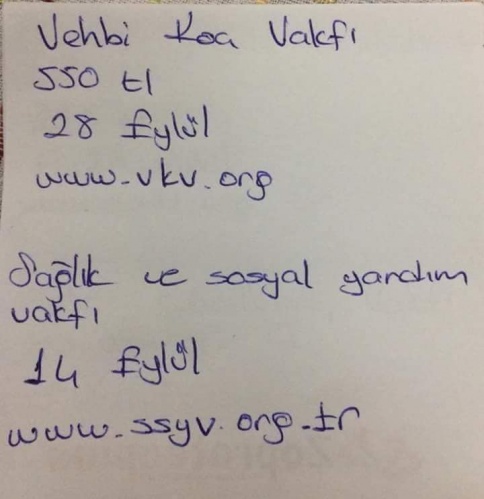 Vehbi Koa Vakfı
550 tl
28 Eylül
www.vkv.org
Sağlık ve sosyal yardım
vakfı
14 Eylül
www.ssyv.org.tr